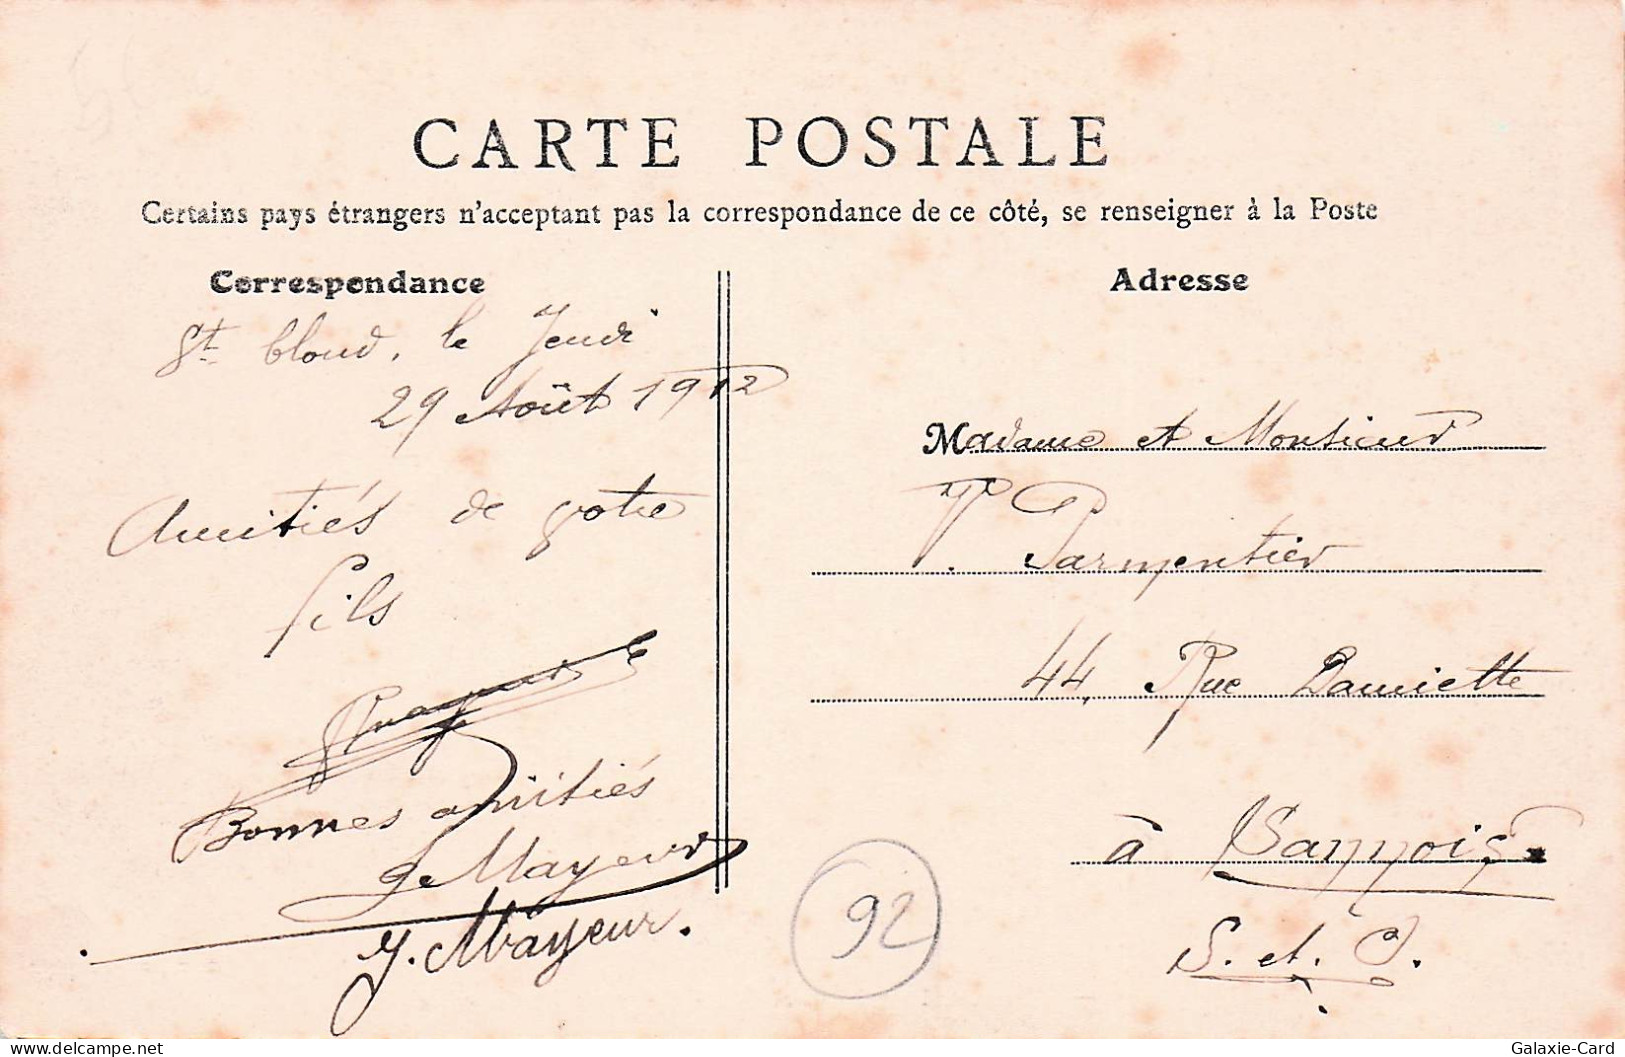 CARTE POSTALE
Certains pays étrangers n'acceptant pas la correspondance de ce côté, se renseigner à la Poste
Correspondance
St Cloud, le Jeudi
29 Août 1912
Amitiés de votre
fils
Bonnes amitiés
G. Mayeur
J. Mayeur.
Adresse
Madame et Monsieur
Parmentier
44, Rue Damiette
à Sannois.
S. et. O.
92
www.delcampe.net
Galaxie-Card